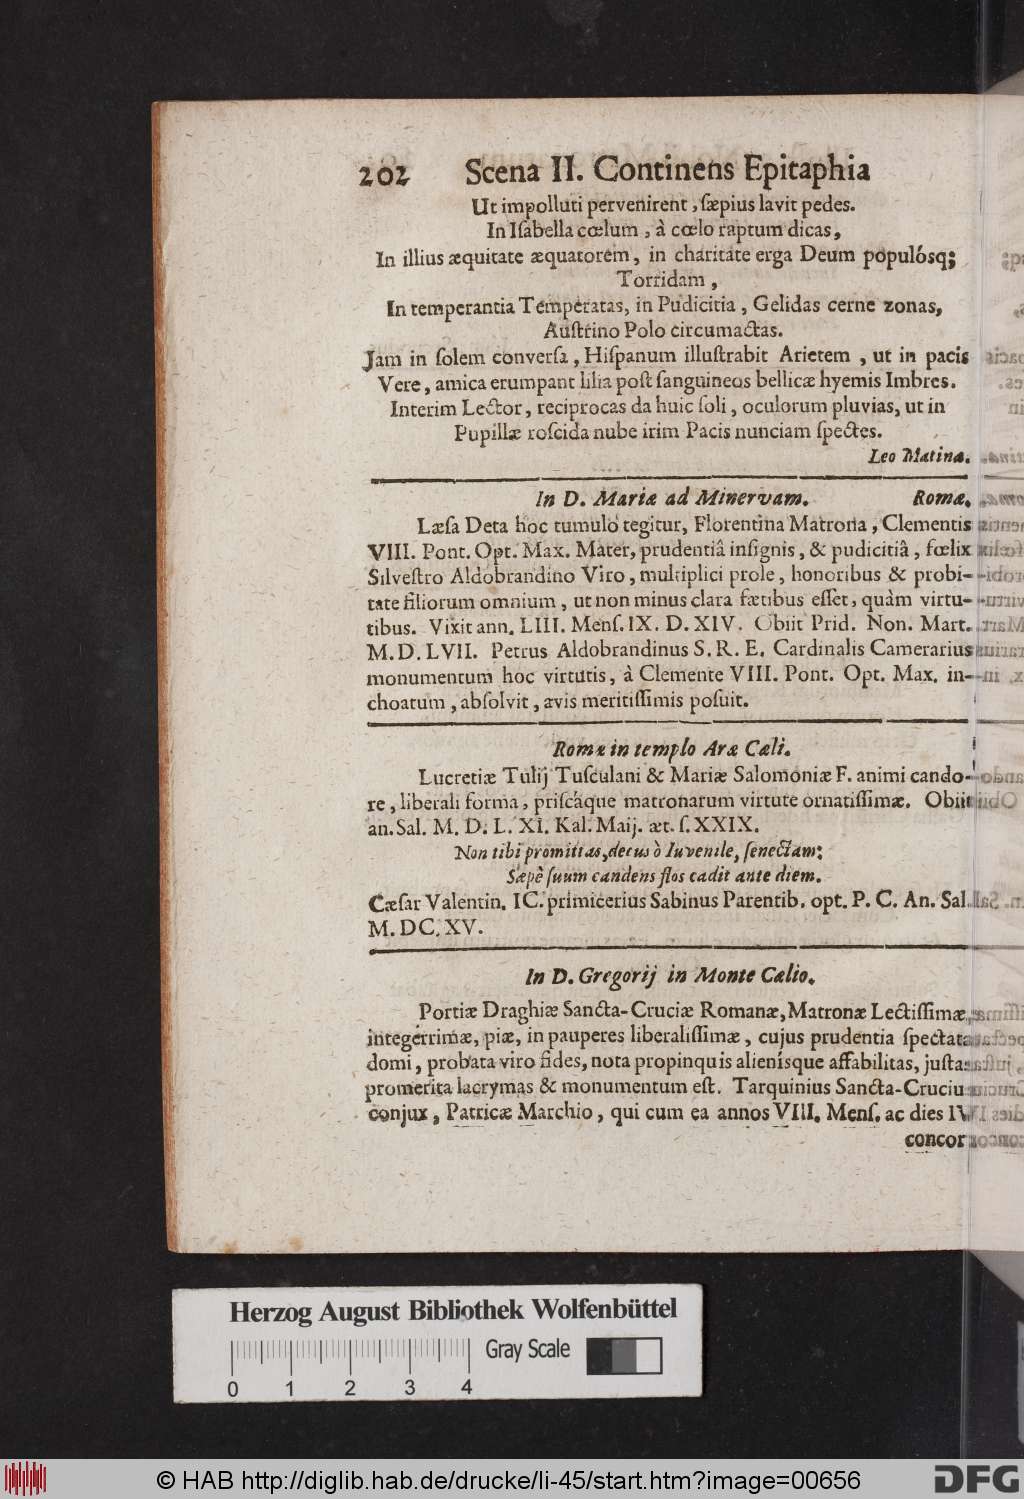 202 Scena II. Continens Epitaphia
Ut impolluti pervenirent, ſæpius lavit pedes.
In Iſabella cœlum, à cœlo raptum dicas,
In illius æquitate æquatorem, in charitate erga Deum populósq;
Torridam,
In temperantia Temperatas, in Pudicitia, Gelidas cerne zonas,
Auſtrino Polo circumactas.
Jam in ſolem converſa, Hiſpanum illuſtrabit Arietem, ut in pacis
Vere, amica erumpant lilia poſt ſanguineos bellicæ hyemis Imbres.
Interim Lector, reciprocas da huic ſoli, oculorum pluvias, ut in
Pupillæ roſcida nube irim Pacis nunciam ſpectes.
Leo Matina.
In D. Mariæ ad Minervam. Romæ.
Læſa Deta hoc tumulo tegitur, Florentina Matrona, Clementis
VIII. Pont. Opt. Max. Mater, prudentiâ inſignis, & pudicitiâ, fœlix
Silveſtro Aldobrandino Viro, multiplici prole, honoribus & probi-
tate filiorum omnium, ut non minus clara fætibus eſſet, quàm virtu-
tibus. Vixit ann. LIII. Menſ. IX. D. XIV. Obiit Prid. Non. Mart.
M. D. LVII. Petrus Aldobrandinus S. R. E. Cardinalis Camerarius
monumentum hoc virtutis, à Clemente VIII. Pont. Opt. Max. in-
choatum, abſolvit, avis meritiſſimis poſuit.
Romæ in templo Aræ Cæli.
Lucretiæ Tulij Tuſculani & Mariæ Salomoniæ F. animi cando-
re, liberali forma, priſcáque matronarum virtute ornatiſſimæ. Obiit
an. Sal. M. D. L. XI. Kal. Maij. æt. ſ. XXIX.
Non tibi promittas, decus ò Iuvenile, ſenectam;
Sæpè ſuum candens flos cadit ante diem.
Cæſar Valentin. IC. primicerius Sabinus Parentib. opt. P. C. An. Sal.
M. DC. XV.
In D. Gregorij in Monte Cælio.
Portiæ Draghiæ Sancta-Cruciæ Romanæ, Matronæ Lectiſſimæ,
integerrimæ, piæ, in pauperes liberaliſſimæ, cujus prudentia ſpectata
domi, probata viro fides, nota propinquis alienísque affabilitas, juſta
promerita lacrymas & monumentum eſt. Tarquinius Sancta-Crucius
conjux, Patricæ Marchio, qui cum ea annos VIII. Menſ. ac dies IV
concor
Herzog August Bibliothek Wolfenbüttel
Gray Scale
0 1 2 3 4
© HAB http://diglib.hab.de/drucke/li-45/start.htm?image=00656
DFG